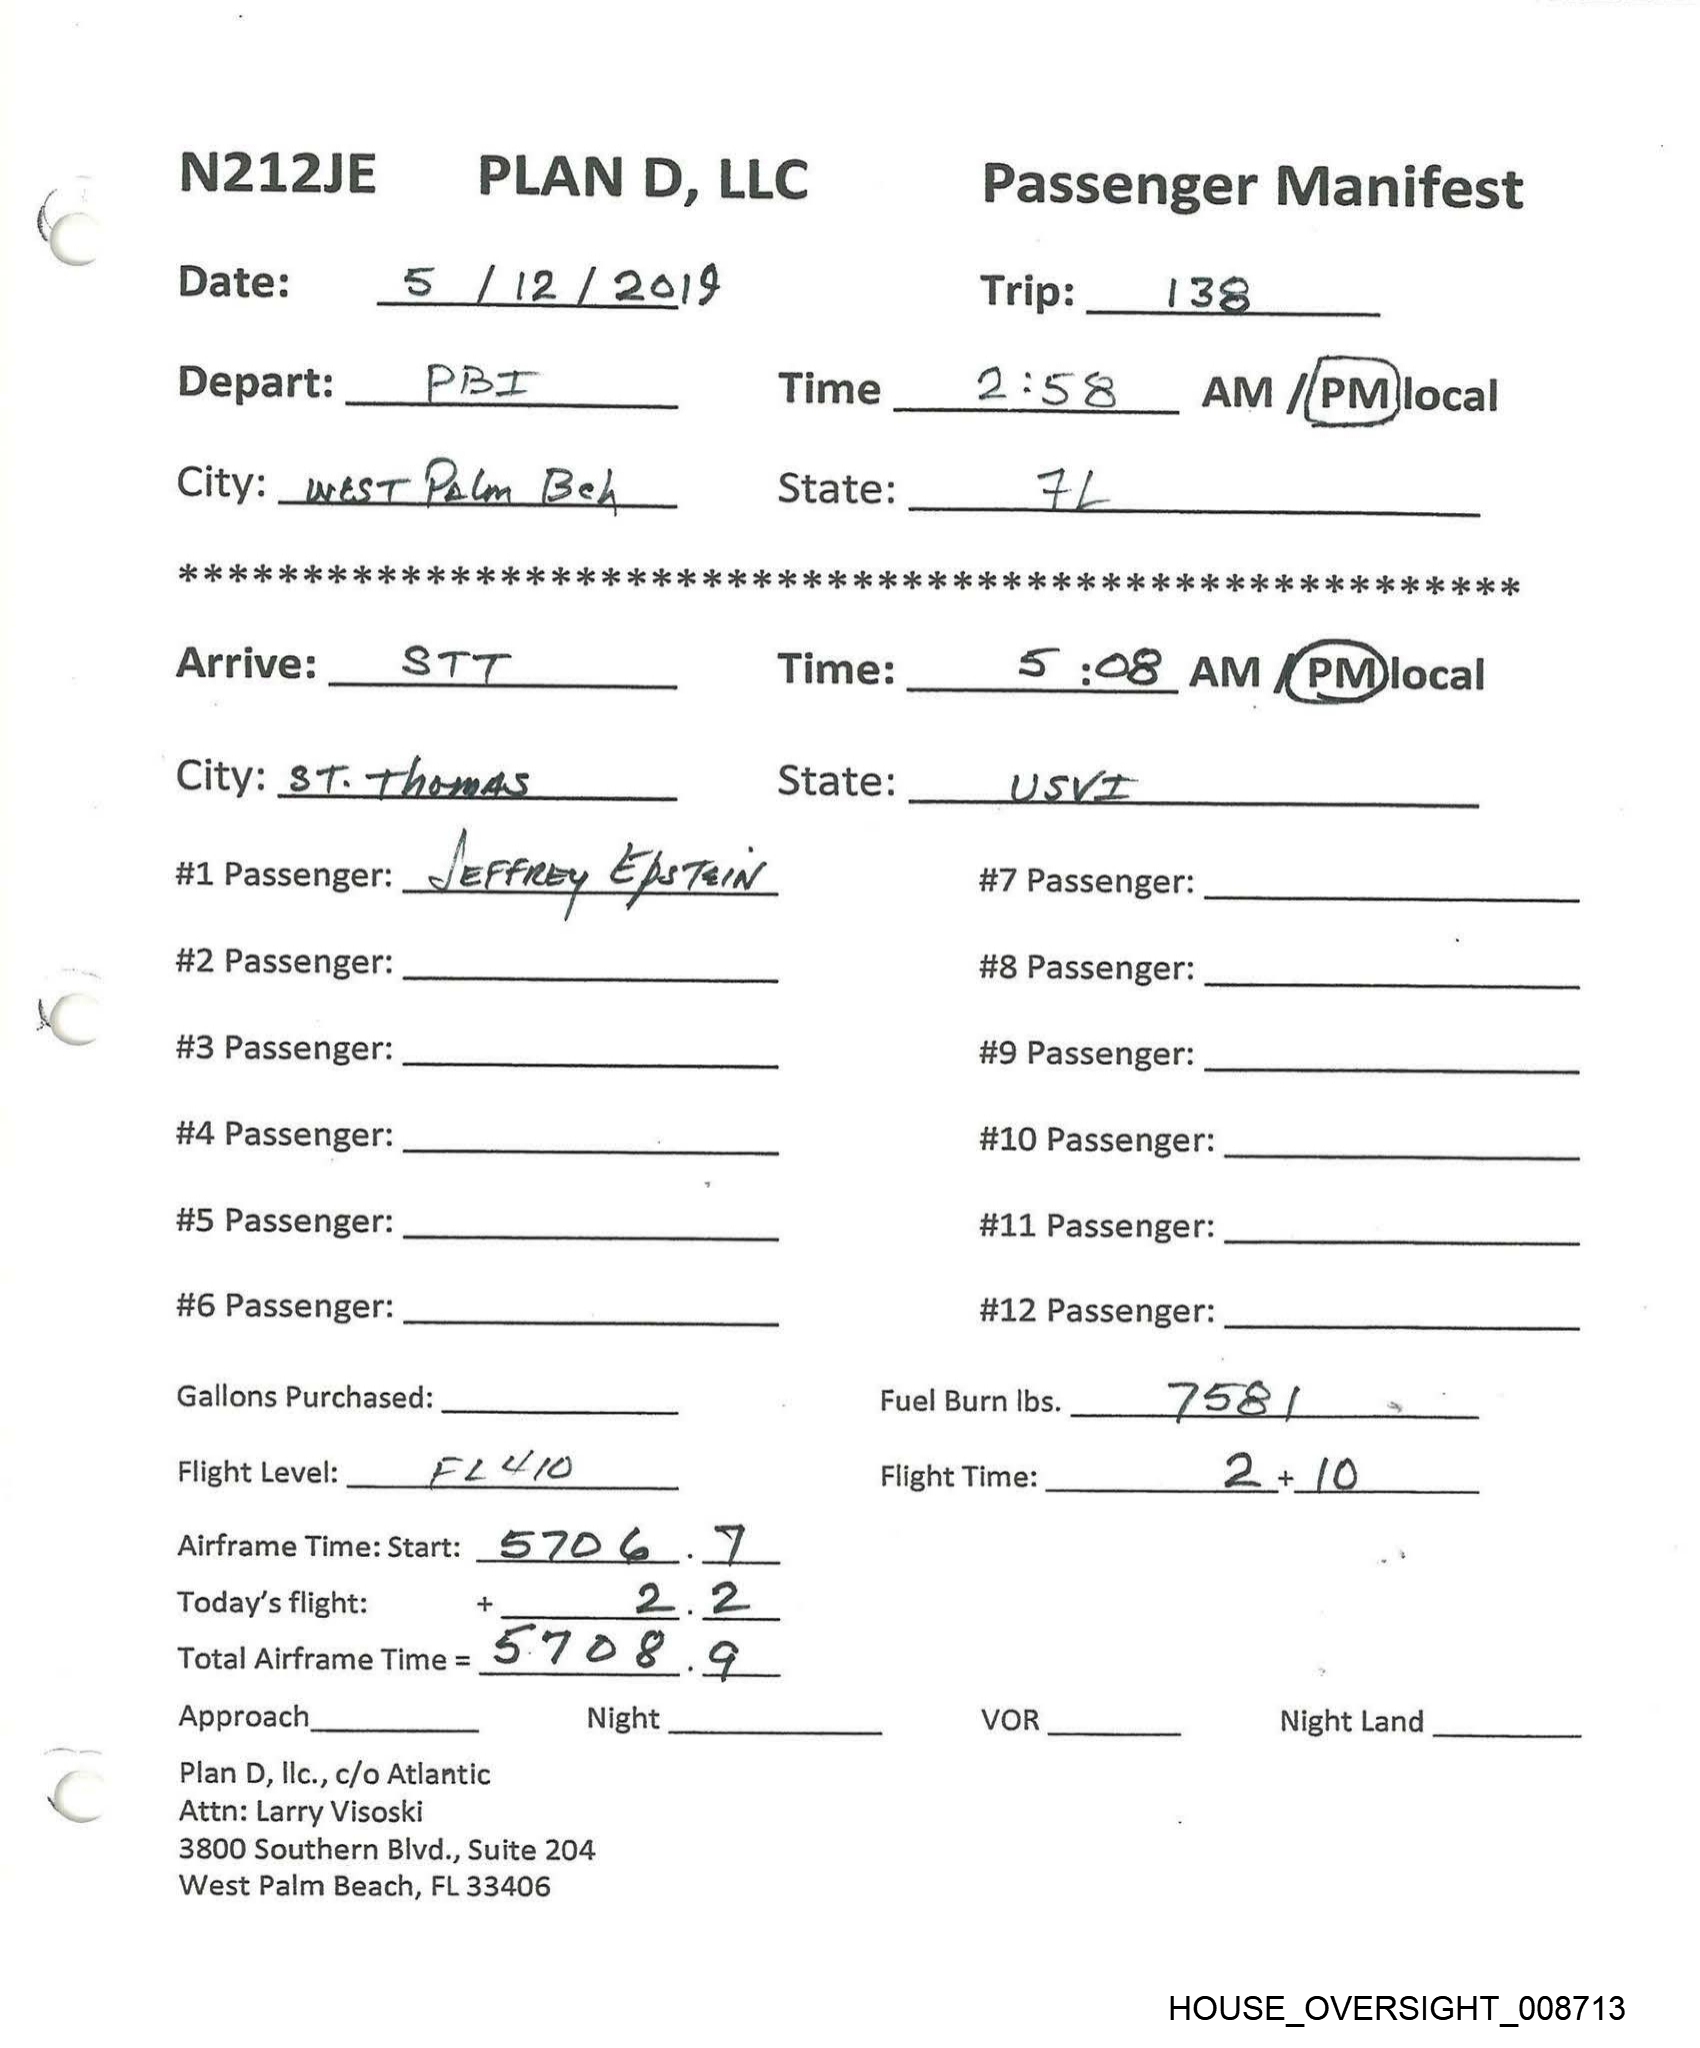 N212JE PLAN D, LLC Passenger Manifest
Date: 5 / 12 / 2019 Trip: 138
Depart: PBI Time 2:58 AM / PM local
City: WEST PALm Bch State: FL
******************************************************
Arrive: STT Time: 5:08 AM / PM local
City: ST. ThomAS State: USVI
#1 Passenger: JEFFREY EpSTEIN #7 Passenger:
#2 Passenger: #8 Passenger:
#3 Passenger: #9 Passenger:
#4 Passenger: #10 Passenger:
#5 Passenger: #11 Passenger:
#6 Passenger: #12 Passenger:
Gallons Purchased: Fuel Burn lbs. 7581
Flight Level: FL 410 Flight Time: 2 + 10
Airframe Time: Start: 5706.7
Today's flight: + 2.2
Total Airframe Time = 5708.9
Approach Night VOR Night Land
Plan D, llc., c/o Atlantic
Attn: Larry Visoski
3800 Southern Blvd., Suite 204
West Palm Beach, FL 33406
HOUSE_OVERSIGHT_008713